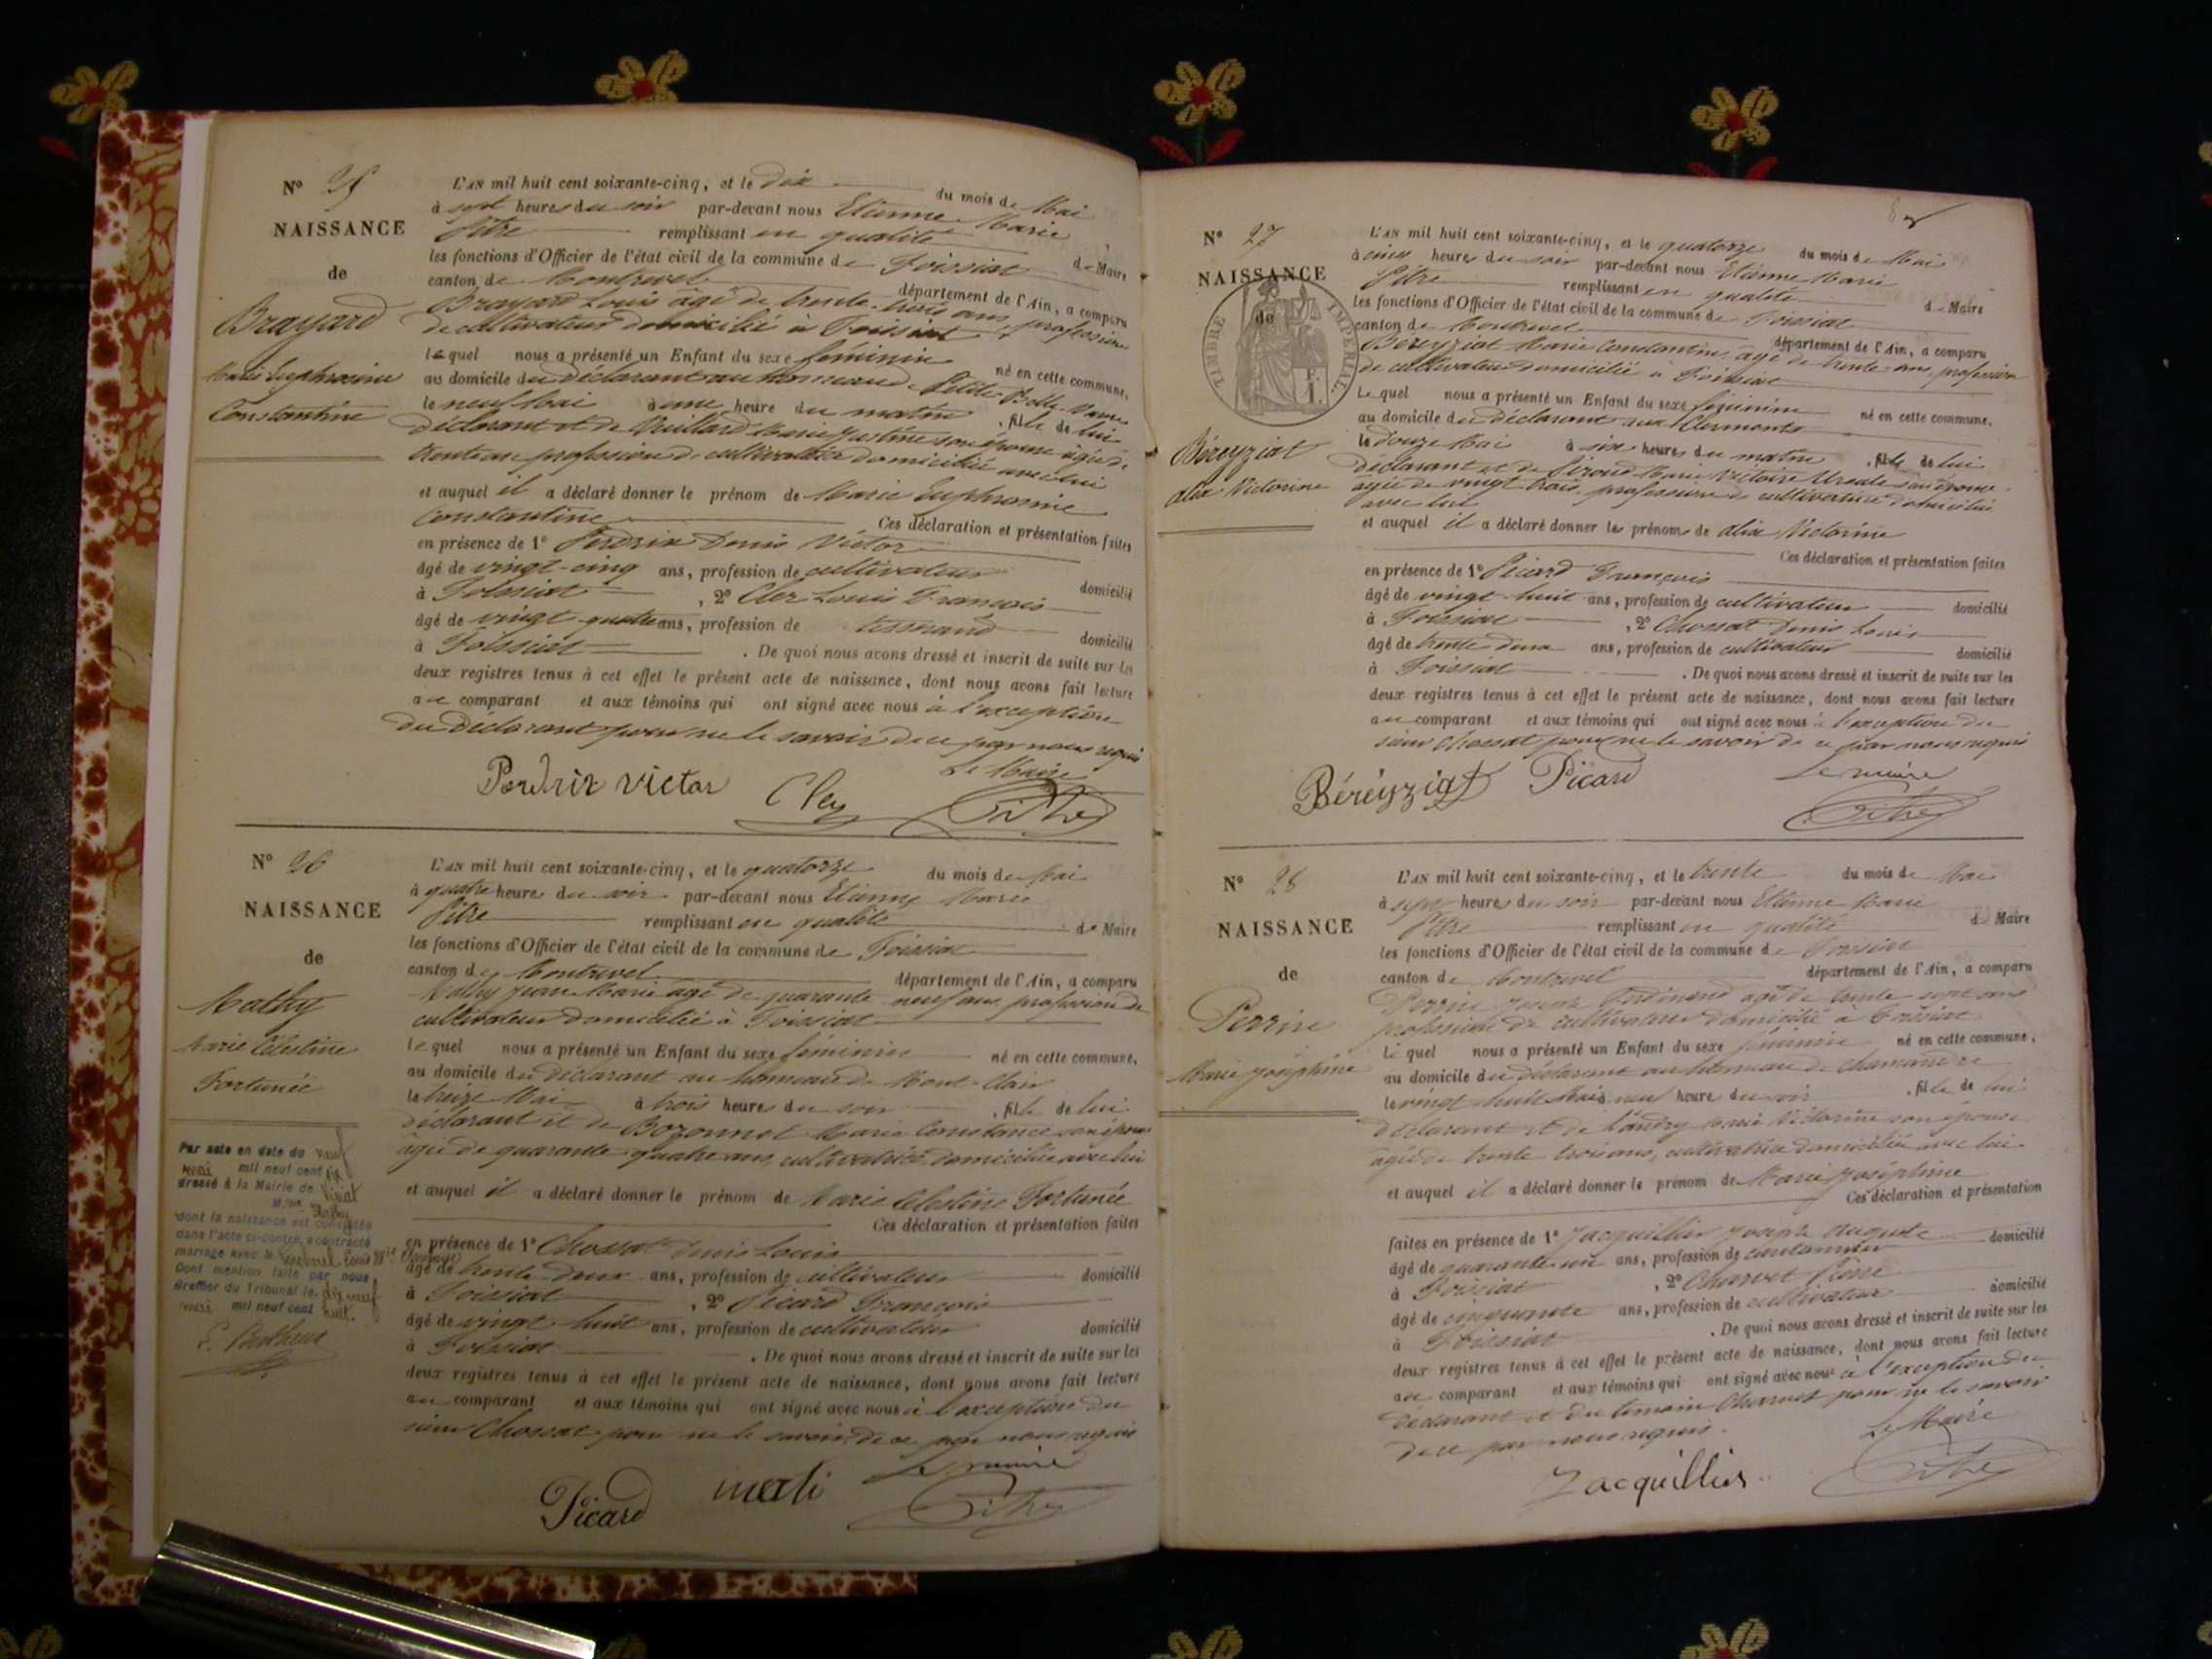 N° 25
NAISSANCE
de
Brayard
Marie Euphrosine
Constantine
L'AN mil huit cent soixante-cinq, et le dix du mois de Mai
à sept heures du soir par-devant nous Etienne Marie
Pitre remplissant en qualité de Maire
les fonctions d'Officier de l'état civil de la commune de Foissiat
canton de Montrevel département de l'Ain, a comparu
Brayard Louis âgé de trente-trois ans, profession
de cultivateur domicilié à Foissiat
lequel nous a présenté un Enfant du sexe féminin né en cette commune,
au domicile du déclarant au hameau de Petite
le neuf Mai à une heure du matin, fille de lui
déclarant et de Vuillard Marie Justine son épouse âgée de
trente ans profession de cultivatrice domiciliée avec lui
et auquel il a déclaré donner le prénom de Marie Euphrosine
Constantine Ces déclaration et présentation faites
en présence de 1° Perdrix Denis Victor
âgé de vingt-cinq ans, profession de cultivateur domicilié
à Foissiat, 2° Cler Louis François
âgé de vingt-quatre ans, profession de domicilié
à Foissiat. De quoi nous avons dressé et inscrit de suite sur les
deux registres tenus à cet effet le présent acte de naissance, dont nous avons fait lecture
au comparant et aux témoins qui ont signé avec nous à l'exception
du Déclarant pour ne le savoir de ce par nous requis
Le Maire
Perdrix victor Cler Pitre
N° 26
NAISSANCE
de
Mathy
Marie Célestine
Fortunée
Par acte en date du neuf
mai mil neuf cent
dressé à la Mairie de
dont la naissance est constatée
dans l'acte ci-contre, a contracté
mariage avec le Louis
Dont mention faite par nous
Greffier du Tribunal le dix neuf
mai mil neuf cent huit.
L'AN mil huit cent soixante-cinq, et le quatorze du mois de Mai
à quatre heures du soir par-devant nous Etienne Marie
Pitre remplissant en qualité de Maire
les fonctions d'Officier de l'état civil de la commune de Foissiat
canton de Montrevel département de l'Ain, a comparu
Mathy Jean Marie âgé de quarante-neuf ans, profession de
cultivateur domicilié à Foissiat
lequel nous a présenté un Enfant du sexe féminin né en cette commune,
au domicile du déclarant au hameau de Mont-Clair
le treize Mai à trois heures du soir, fille de lui
déclarant et de Bozonnet Marie Constance son épouse
âgée de quarante quatre ans, cultivatrice domiciliée avec lui
et auquel il a déclaré donner le prénom de Marie Célestine Fortunée
Ces déclaration et présentation faites
en présence de 1° Chossat Denis Louis
âgé de trente-deux ans, profession de cultivateur domicilié
à Foissiat, 2° Picard François
âgé de vingt huit ans, profession de cultivateur domicilié
à Foissiat. De quoi nous avons dressé et inscrit de suite sur les
deux registres tenus à cet effet le présent acte de naissance, dont nous avons fait lecture
au comparant et aux témoins qui ont signé avec nous à l'exception du
sieur Chossat pour ne le savoir de ce par nous requis
Le maire
Picard mati Pitre
N° 27
NAISSANCE
de
TIMBRE IMPÉRIAL
Béreyziat
Alix Victorine
L'AN mil huit cent soixante-cinq, et le quatorze du mois de Mai
à cinq heures du soir par-devant nous Etienne Marie
Pitre remplissant en qualité de Maire
les fonctions d'Officier de l'état civil de la commune de Foissiat
canton de Montrevel département de l'Ain, a comparu
Béreyziat Marie Constantin, âgé de trente ans, profession
de cultivateur domicilié à Foissiat
Lequel nous a présenté un Enfant du sexe féminin né en cette commune,
au domicile du déclarant aux Clermonts
le douze Mai à six heures du matin, fille de lui
déclarant et de Piroud Marie Victoire Ursule son épouse
âgée de vingt trois, professeure de cultivatrice domiciliée
avec lui
et auquel il a déclaré donner les prénoms de alix Victorine
Ces déclaration et présentation faites
en présence de 1° Picard François
âgé de vingt-huit ans, profession de cultivateur domicilié
à Foissiat, 2° Chossat Denis Louis
âgé de trente deux ans, profession de cultivateur domicilié
à Foissiat. De quoi nous avons dressé et inscrit de suite sur les
deux registres tenus à cet effet le présent acte de naissance, dont nous avons fait lecture
au comparant et aux témoins qui ont signé avec nous à l'exception du
sieur Chossat pour ne le savoir de ce par nous requis
Le maire
Béréyziat Picard Pitre
N° 28
NAISSANCE
de
Perrin
Marie Joséphine
L'AN mil huit cent soixante-cinq, et le trente du mois de Mai
à sept heures du soir par-devant nous Etienne Marie
Pitre remplissant en qualité de Maire
les fonctions d'Officier de l'état civil de la commune de Foissiat
canton de Montrevel département de l'Ain, a comparu
Perrin Joseph Ferdinand âgé de trente sept ans
profession de cultivateur domicilié à Foissiat
Lequel nous a présenté un Enfant du sexe féminin né en cette commune,
au domicile du déclarant au hameau de Chamandre
le vingt huit Mai à neuf heure du soir, fille de lui
déclarant et de Landry Marie Victorine son épouse
âgée de trente trois ans, cultivatrice domiciliée avec lui
et auquel il a déclaré donner le prénom de Marie Joséphine
Ces déclaration et présentation
faites en présence de 1° Jacquillier Joseph Auguste domicilié
âgé de quarante-un ans, profession de cantonnier
à Foissiat, 2° Charvet Pierre
âgé de cinquante ans, profession de cultivateur domicilié
à Foissiat. De quoi nous avons dressé et inscrit de suite sur les
deux registres tenus à cet effet le présent acte de naissance, dont nous avons fait lecture
au comparant et aux témoins qui ont signé avec nous à l'exception du
déclarant et du témoin Charvet pour ne le savoir
de ce par nous requis.
Le Maire
Jacquillier Pitre